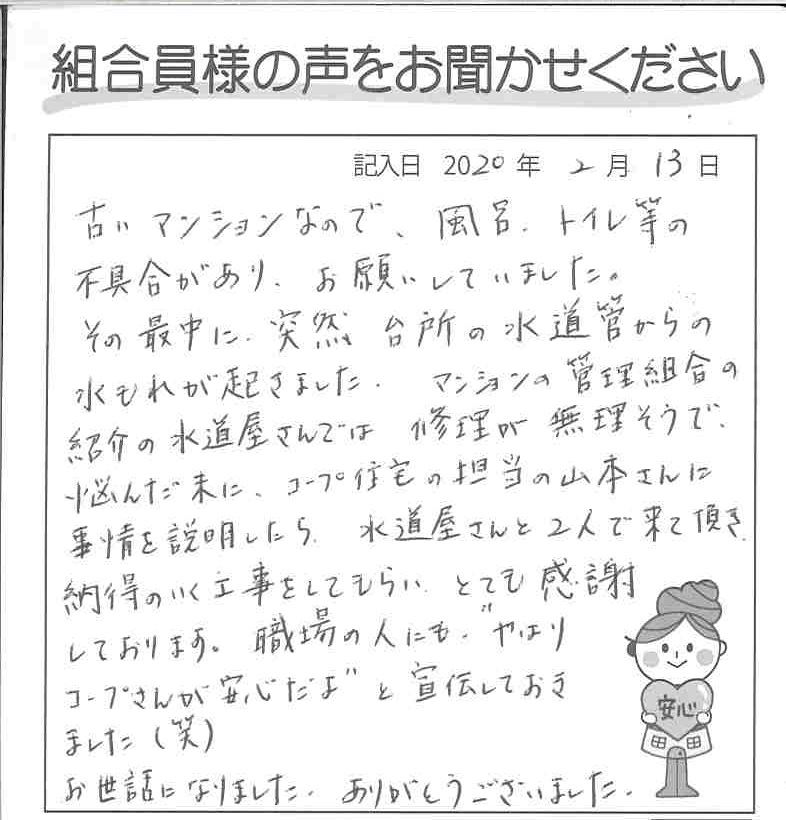 組合員様の声をお聞かせください
記入日 2020年 2月 13日
古いマンションなので、風呂、トイレ等の
不具合があり、お願いしていました。
その最中に、突然 台所の水道管からの
水もれが起きました。 マンションの管理組合の
紹介の水道屋さんでは 修理が無理そうで、
悩んだ末に、コープ住宅の担当の山本さんに
事情を説明したら、水道屋さんと2人で来て頂き、
納得のいく工事をしてもらい、とても感謝
しております。職場の人にも、"やはり
コープさんが安心だよ"と宣伝しておき
ました(笑)
お世話になりました。ありがとうございました。
安心